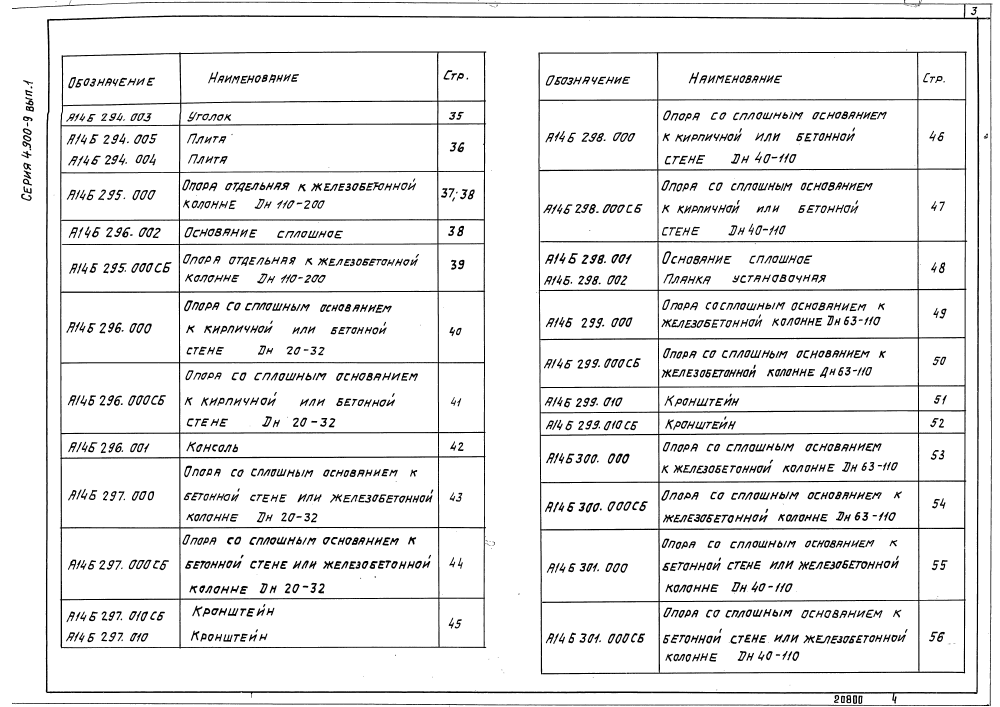 3
Серия 4.900-9 вып.1
Обозначение Наименование Стр.
А14Б 294.003 Уголок 35
А14Б 294.005 Плита
А14Б 294.004 Плита 36
А14Б 295.000 Опора отдельная к железобетонной
колонне Dн 110-200 37; 38
А14Б 296.002 Основание сплошное 38
А14Б 295.000СБ Опора отдельная к железобетонной
колонне Dн 110-200 39
А14Б 296.000 Опора со сплошным основанием
к кирпичной или бетонной
стене Dн 20-32 40
А14Б 296.000СБ Опора со сплошным основанием
к кирпичной или бетонной
стене Dн 20-32 41
А14Б 296.001 Консоль 42
А14Б 297.000 Опора со сплошным основанием к
бетонной стене или железобетонной
колонне Dн 20-32 43
А14Б 297.000СБ Опора со сплошным основанием к
бетонной стене или железобетонной
колонне Dн 20-32 44
А14Б 297.010СБ Кронштейн
А14Б 297.010 Кронштейн 45
Обозначение Наименование Стр.
А14Б 298.000 Опора со сплошным основанием
к кирпичной или бетонной
стене Dн 40-110 46
А14Б 298.000СБ Опора со сплошным основанием
к кирпичной или бетонной
стене Dн 40-110 47
А14Б 298.001 Основание сплошное
А14Б. 298.002 Планка установочная 48
А14Б 299.000 Опора со сплошным основанием к
железобетонной колонне Dн 63-110 49
А14Б 299.000СБ Опора со сплошным основанием к
железобетонной колонне Дн 63-110 50
А14Б 299.010 Кронштейн 51
А14Б 299.010СБ Кронштейн 52
А14Б 300.000 Опора со сплошным основанием
к железобетонной колонне Dн 63-110 53
А14Б 300.000СБ Опора со сплошным основанием к
железобетонной колонне Dн 63-110 54
А14Б 301.000 Опора со сплошным основанием к
бетонной стене или железобетонной
колонне Dн 40-110 55
А14Б 301.000СБ Опора со сплошным основанием к
бетонной стене или железобетонной
колонне Dн 40-110 56
20800 4